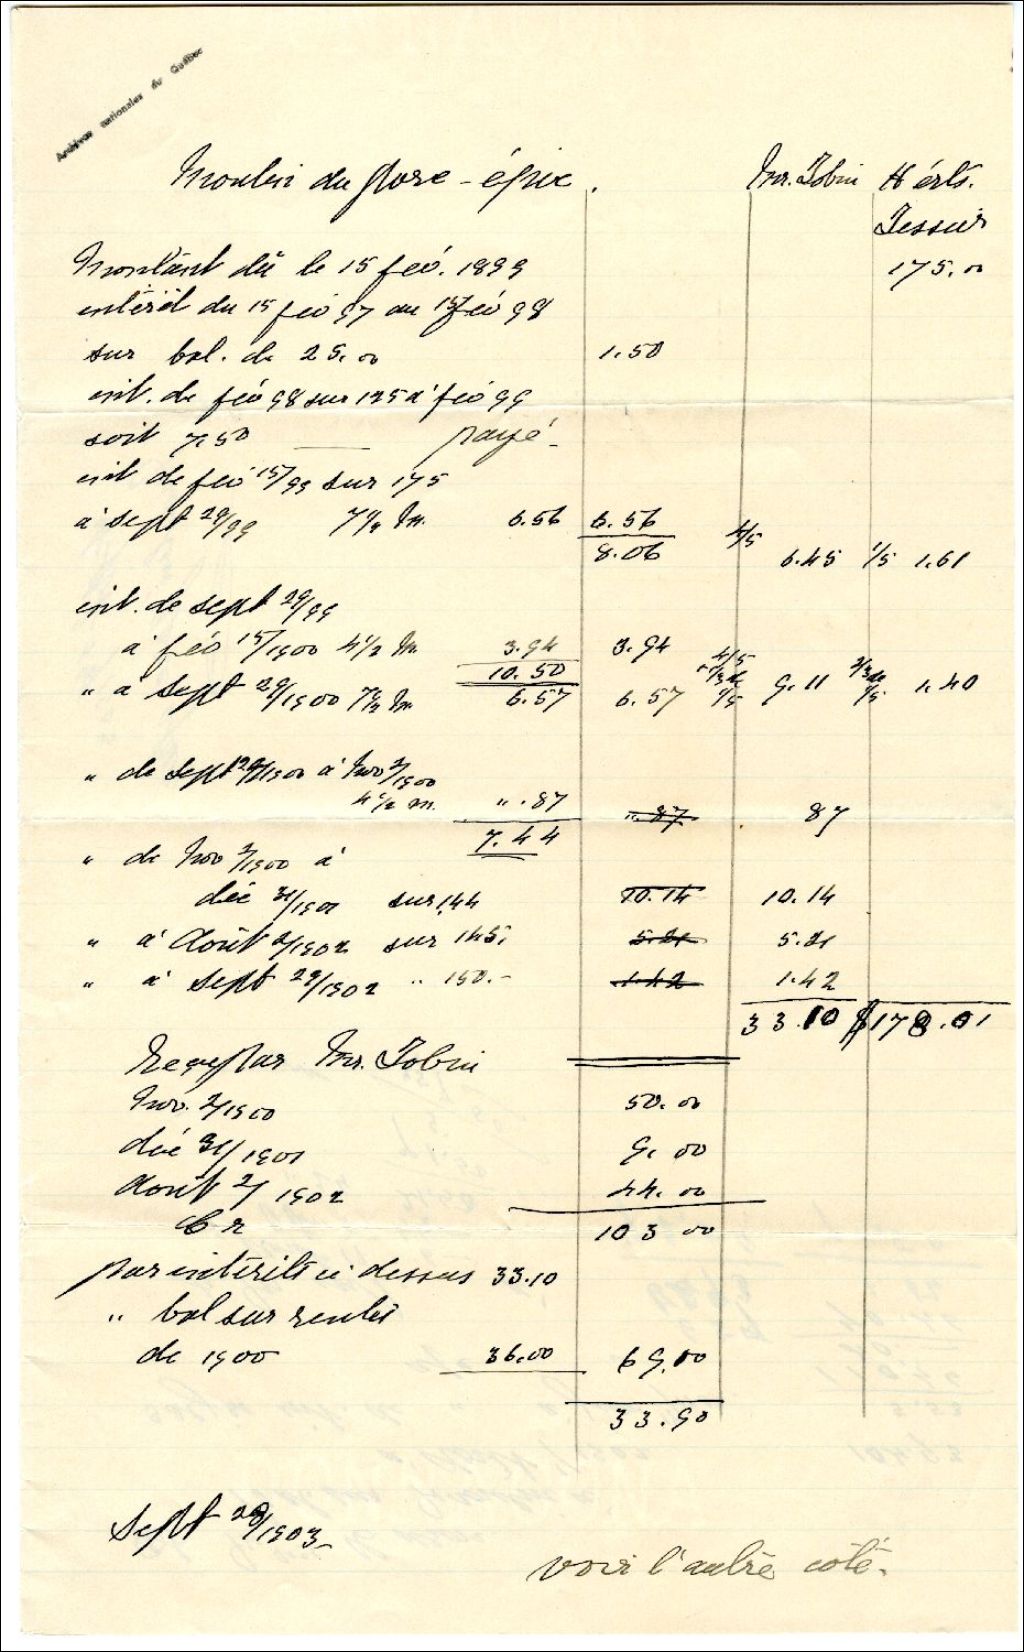 Archives nationales du Québec
Moulin du Porc-épic. Mr. Tobin Hérts.
Tessier
Montant dû le 15 fév. 1899 175.00
intérêt du 15 fév 97 au 15 fév 98
sur bal. de 25.00 1.50
int. de fév 98 sur 125 à fév 99
soit 7.50 — payé -
int de fév 15/99 sur 175
à sept 29/99 7 1/2 m. 6.56 6.56
8.06 4/5 6.45 1/5 1.61
int. de sept 29/99
à fév 15/1900 4 1/2 m. 3.94 3.94 4/5
10.50
" à sept 29/1900 7 1/2 m 6.57 6.57 + 1/3 de 1/5 9.11 2/3 de 1/5 1.40
" de sept 29/1900 à Nov 2/1900
4 1/2 m. " .87 " .87 87
7.44
" de Nov 2/1900 à
déc 31/1901 sur 144 10.14 10.14
" à Août 2/1902 sur 145. 5.21 5.21
" à sept 29/1902 " 150.- 1.42 1.42
33.10 $178.01
Reçu par Mr. Tobin
Nov. 2/1900 50.00
déc 31/1901 9.00
Août 2/1902 44.00
Cr 103 00
par intérêts ci dessus 33.10
" bal sur rente
de 1900 36.00 69.00
33.90
Sept 29/1903-
voir l'autre côté.